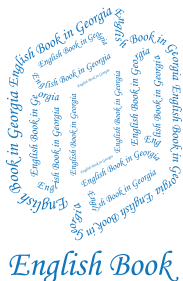 English Book in Georgia English Book in Georgia English Book in Georgia English Book in Georgia
English Book in Georgia
English Book in Georgia
English Book in Georgia
English Book in Georgia
English Book in Georgia
English Book in Georgia
English Book in Georgia
English Book in Georgia
English Book